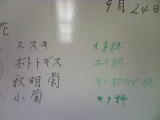 9月24日
花
ススキ イネ科
ホトトギス ユリ科
秋明菊 キンポウゲ科
小菊 キク科